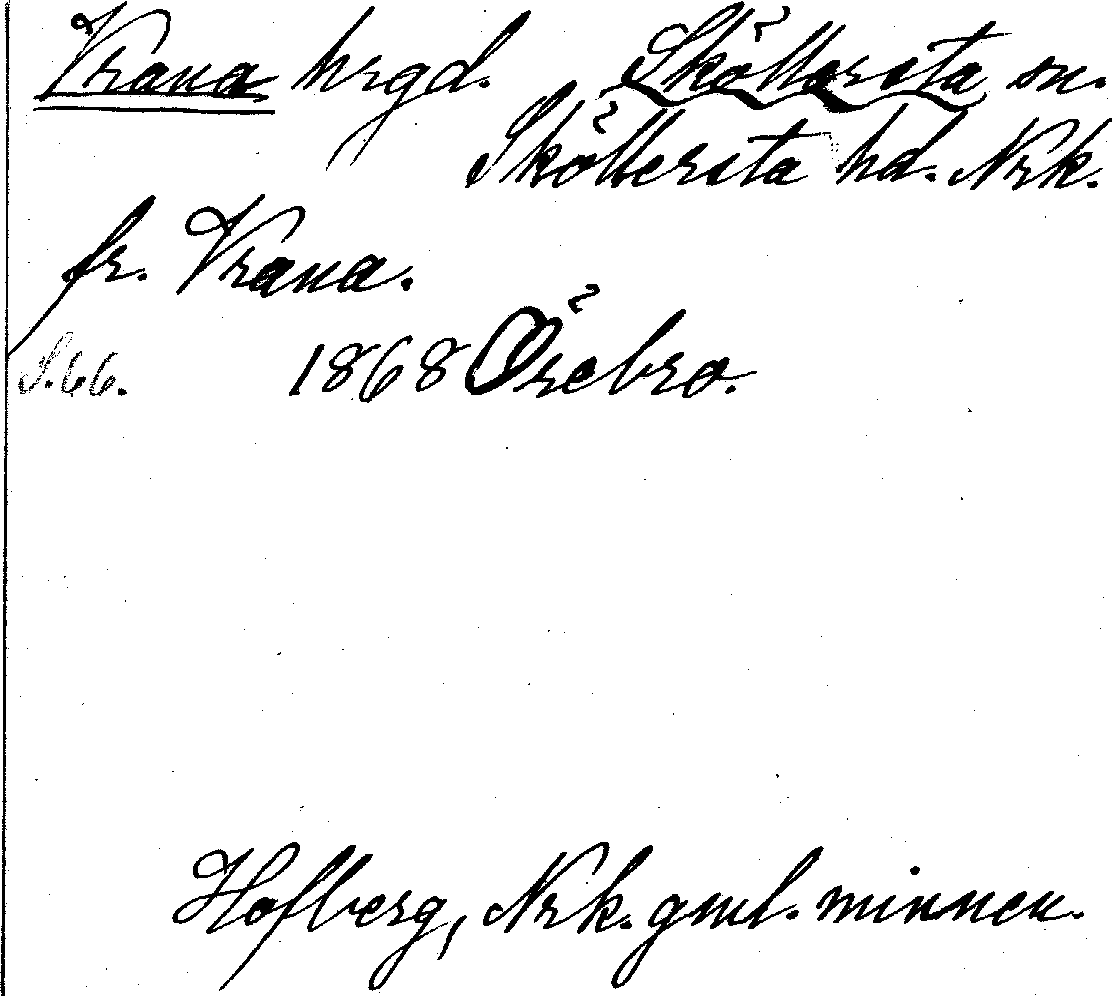 Vrana hrgd. Sköllersta sn.
Sköllersta hd. Nrk.
fr. Vrana.
S. 66. 1868 Örebro.
Hofberg, Nrk. gml. minnen.